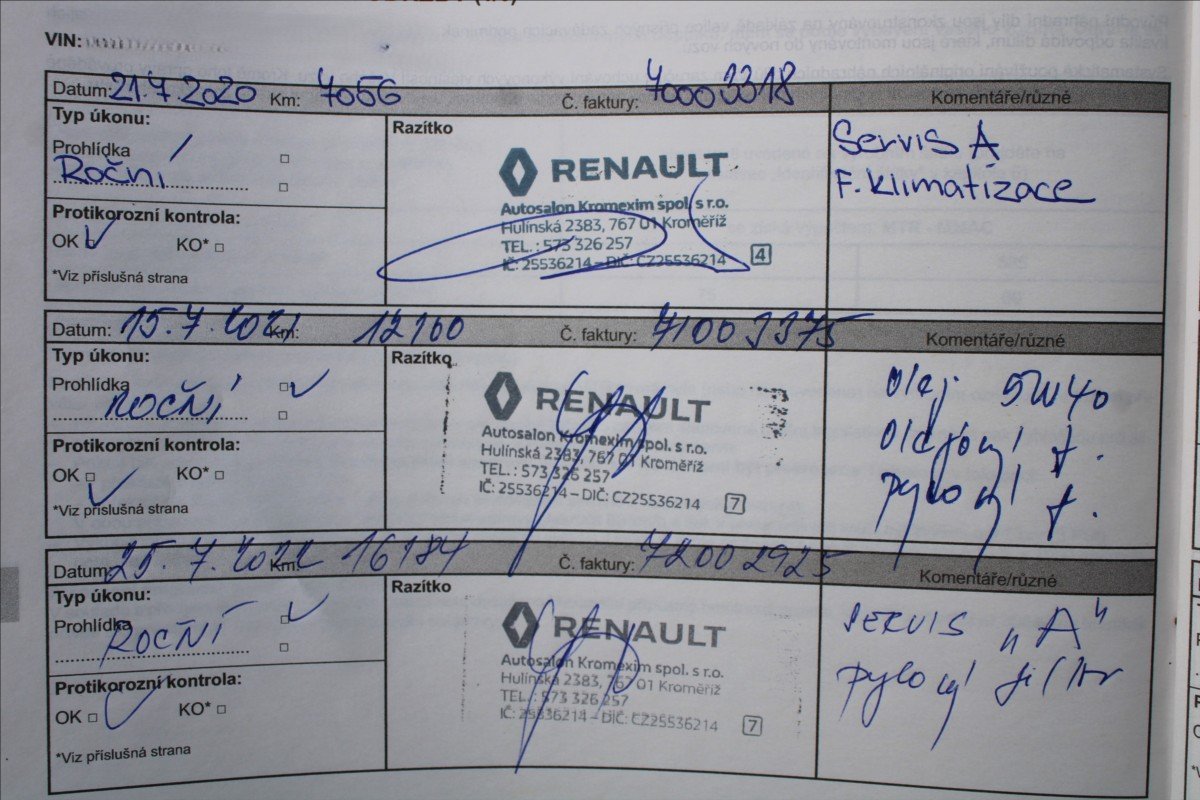 VIN:
Datum: 21.7.2020 Km: 7056 Č. faktury: 70003318 Komentáře/různé
Typ úkonu:
Prohlídka
Roční
Protikorozní kontrola:
OK KO*
*Viz příslušná strana
Razítko
RENAULT
Autosalon Kromexim spol. s r.o.
Hulínská 2383, 767 01 Kroměříž
TEL.: 573 326 257
IČ: 25536214 – DIČ: CZ25536214 4
Servis A
F. Klimatizace
Datum: 15.7.2021 Km: 12160 Č. faktury: 71003375 Komentáře/různé
Typ úkonu:
Prohlídka
ROČNÍ
Protikorozní kontrola:
OK KO*
*Viz příslušná strana
Razítko
RENAULT
Autosalon Kromexim spol. s r.o.
Hulínská 2383, 767 01 Kroměříž
TEL.: 573 326 257
IČ: 25536214 – DIČ: CZ25536214 7
Olej 5W40
Olejový f.
pylový f.
Datum: 25.7.2022 Km: 16184 Č. faktury: 72002925 Komentáře/různé
Typ úkonu:
Prohlídka
ROČNÍ
Protikorozní kontrola:
OK KO*
*Viz příslušná strana
Razítko
RENAULT
Autosalon Kromexim spol. s r.o.
Hulínská 2383, 767 01 Kroměříž
TEL.: 573 326 257
IČ: 25536214 – DIČ: CZ25536214 7
SERVIS „A"
pylový filtr